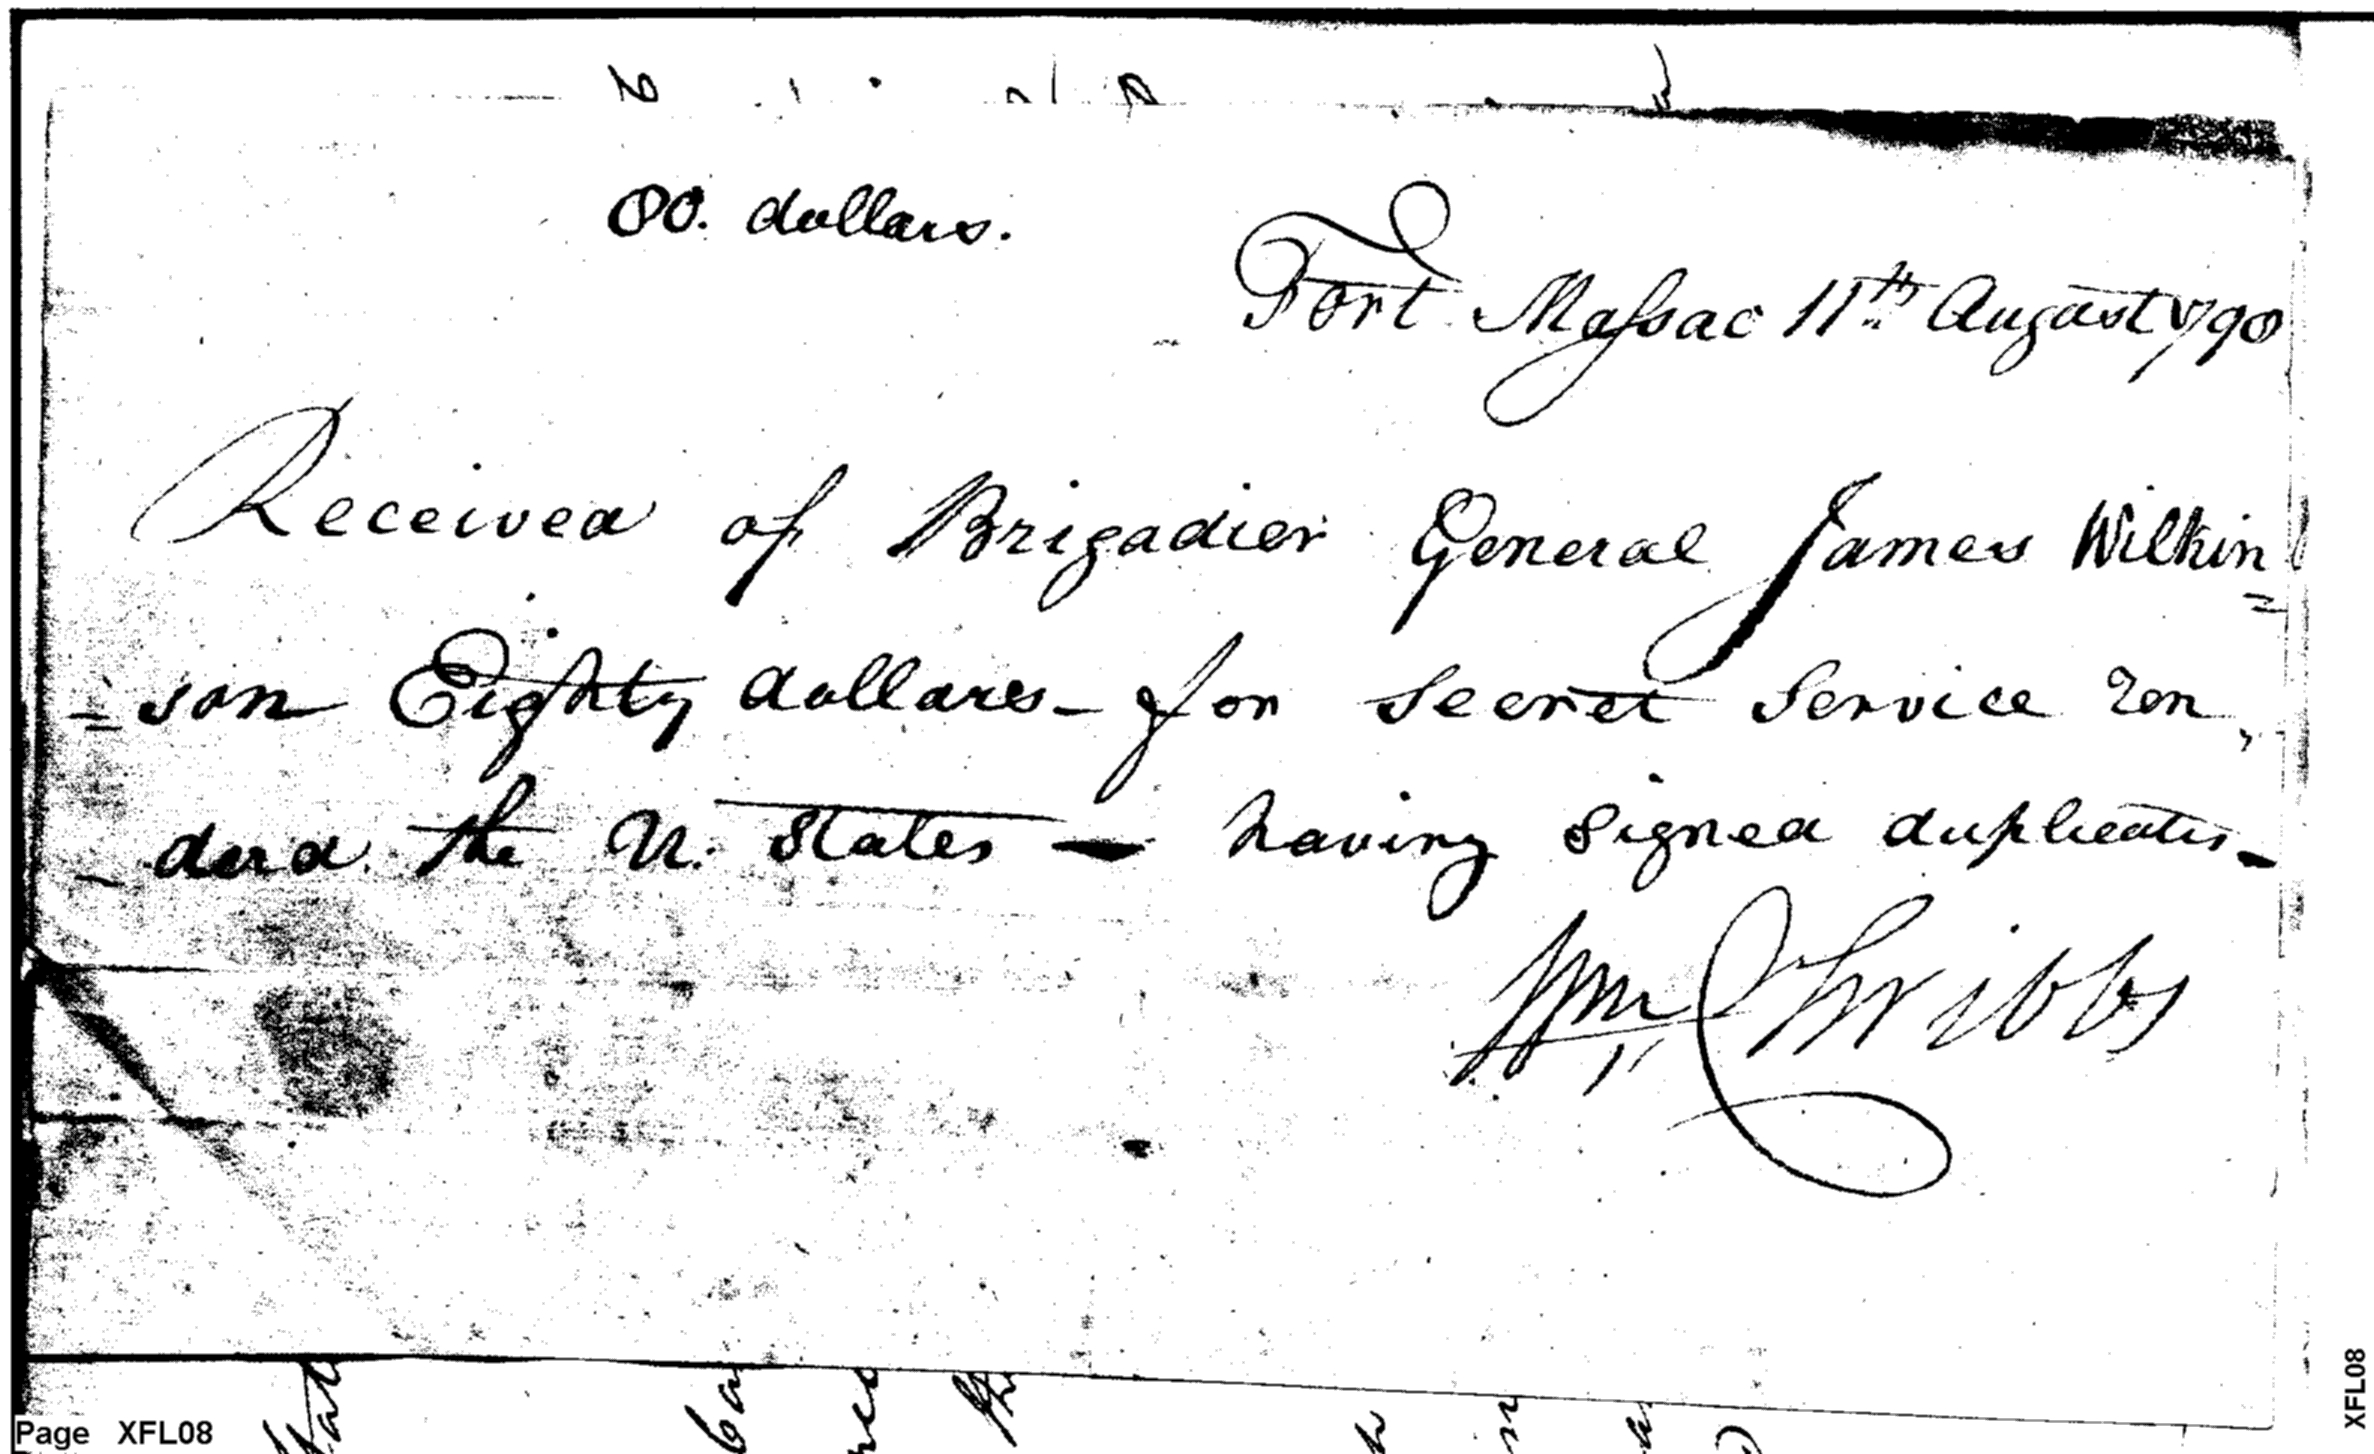 80. dollars.
Fort Massac 11th August 1798
Received of Brigadier General James Wilkin=
=son Eighty dollars - for secret service ren,
- derd the U. States - having signed duplicates -
Wm Chribbs
Page XFL08
XFL08